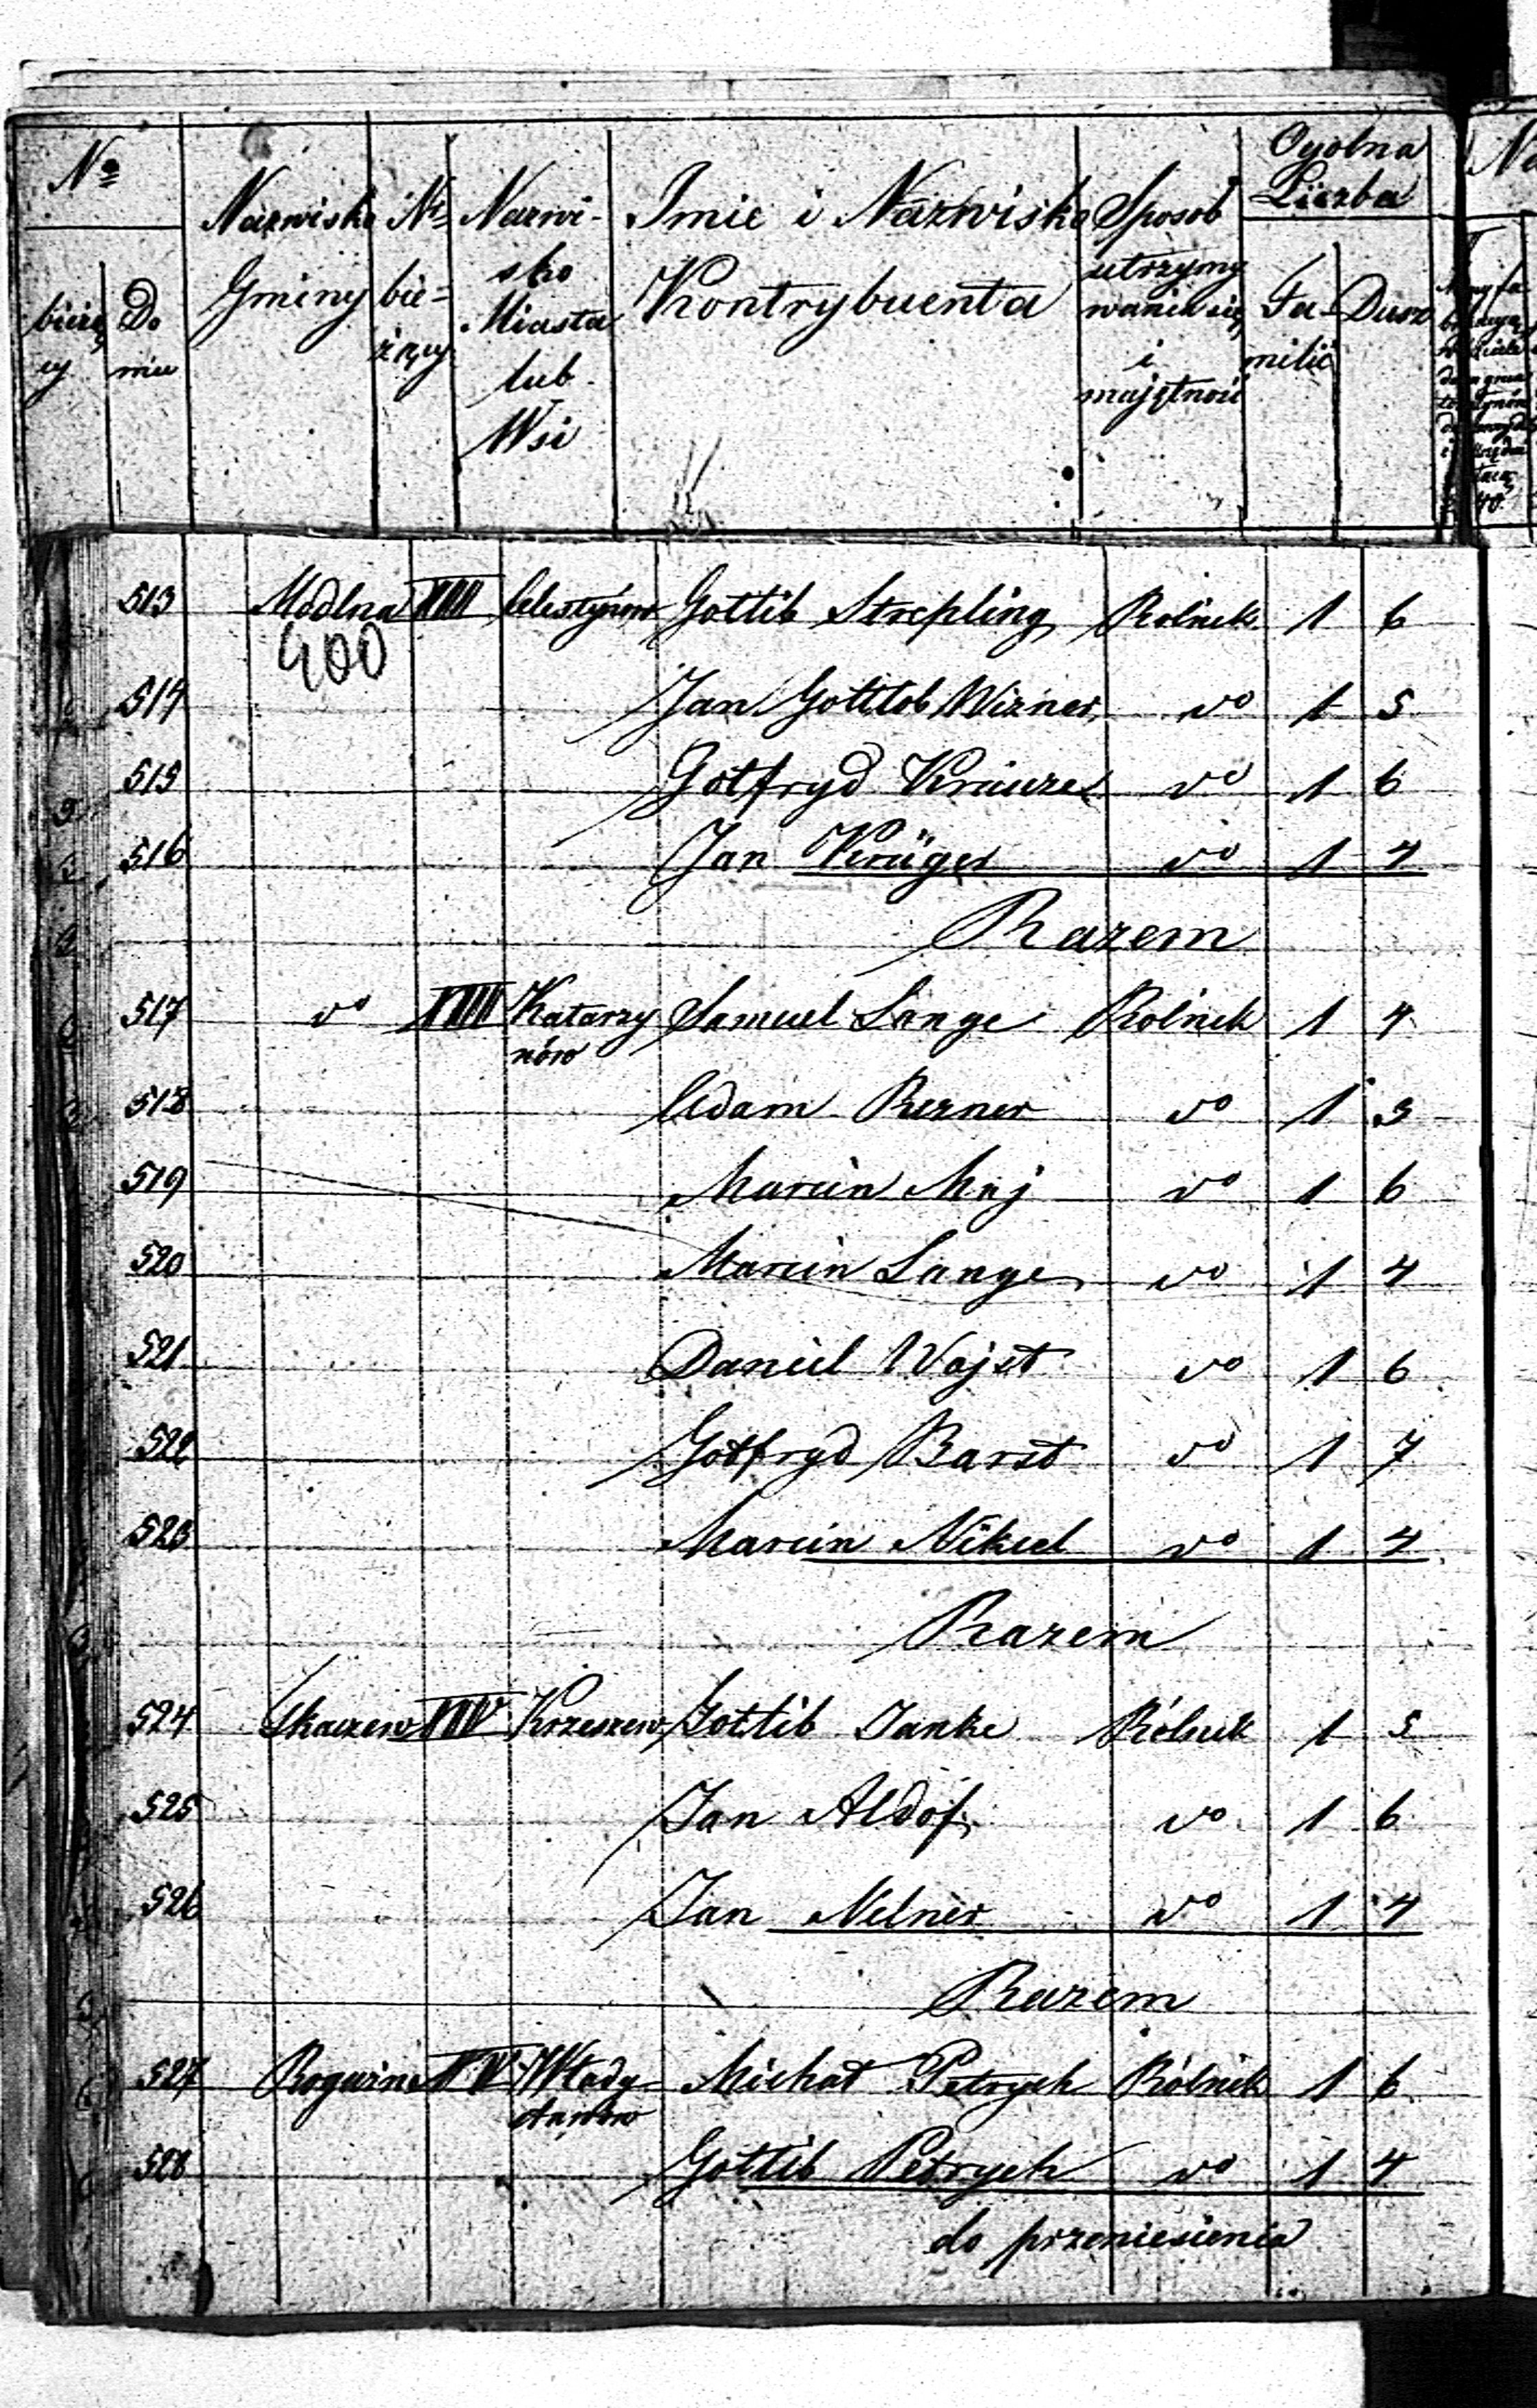 No
bieżący
Do
mu
Nazwisko
Gminy
No
bie=
żący
Nazwi-
sko
Miasta
lub
Wsi
Imie i Nazwisko
Kontrybuenta
Sposob
utrzymy
wania się
i
majętność
Ogólna
Liczba
Fa-
milii
Dusz
513 Modlna XIII Celestynow Gottlib Strepling Rolnik 1 6
400
514 Jan Gottlob Wizner do 1 5
515 Gotfryd Krauze do 1 6
516 Jan Krüger do 1 4
Razem
517 do XIIII Katarzy Samuel Lange Rolnik 1 4
nów
518 Adam Rezner do 1 3
519 Marcin Maj do 1 6
520 Marcin Lange do 1 4
521 Daniel Wajst do 1 6
522 Gotfryd Barst do 1 7
523 Marcin Nikiel do 1 4
Razem
524 Tkaczew Krzeszew Gottlib Janke Rólnik 1 5
525 Jan Aldof do 1 6
526 Jan Nelner do 1 4
Razem
527 XV Włady Michał Petrych Rólnik 1 6
sławow
528 Gottlib Petrych do 1 4
do przeniesienia